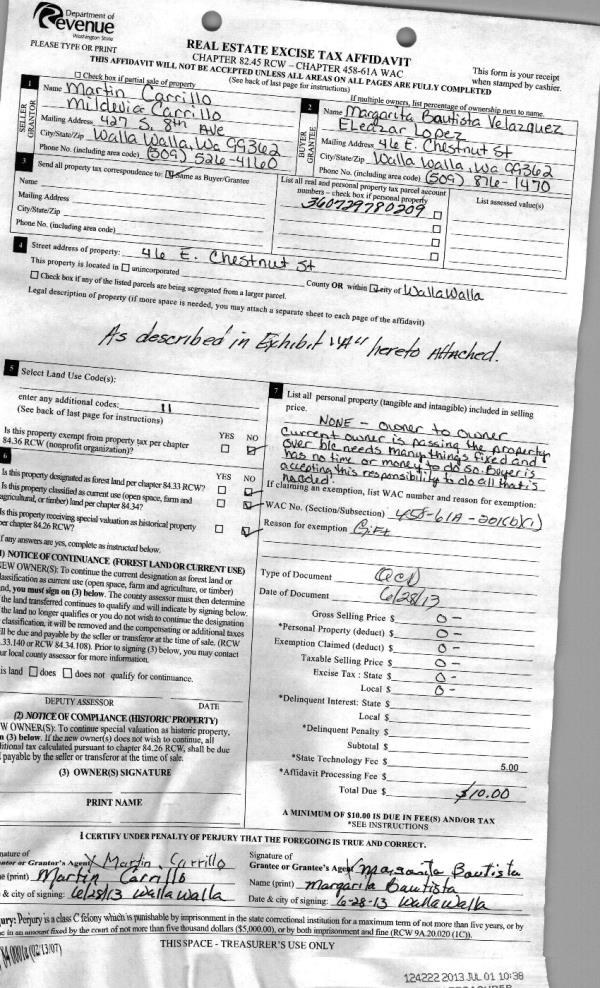 Department of
Revenue
Washington State
PLEASE TYPE OR PRINT
REAL ESTATE EXCISE TAX AFFIDAVIT
CHAPTER 82.45 RCW – CHAPTER 458-61A WAC
This form is your receipt
when stamped by cashier.
THIS AFFIDAVIT WILL NOT BE ACCEPTED UNLESS ALL AREAS ON ALL PAGES ARE FULLY COMPLETED
(See back of last page for instructions)
Check box if partial sale of property
If multiple owners, list percentage of ownership next to name.
1
SELLER
GRANTOR
Name Martin Carrillo
Mailing Address 427 S. 8th Ave
City/State/Zip Walla Walla, Wa 99362
Phone No. (including area code) (509) 526-4160
2
BUYER
GRANTEE
Name Margarita Bautista Velazquez
Eleazar Lopez
Mailing Address 46 E. Chestnut St
City/State/Zip Walla Walla, Wa 99362
Phone No. (including area code) (509) 876-1470
3
Send all property tax correspondence to: Same as Buyer/Grantee
Name
Mailing Address
City/State/Zip
Phone No. (including area code)
List all real and personal property tax parcel account
numbers – check box if personal property
360729780209
List assessed value(s)
4
Street address of property: 46 E. Chestnut St
This property is located in unincorporated County OR within city of Walla Walla
Check box if any of the listed parcels are being segregated from a larger parcel.
Legal description of property (if more space is needed, you may attach a separate sheet to each page of the affidavit)
As described in Exhibit "A" hereto Attached.
5
Select Land Use Code(s):
enter any additional codes: 11
(See back of last page for instructions)
YES NO
Is this property exempt from property tax per chapter
84.36 RCW (nonprofit organization)?
6
YES NO
Is this property designated as forest land per chapter 84.33 RCW?
Is this property classified as current use (open space, farm and
agricultural, or timber) land per chapter 84.34?
Is this property receiving special valuation as historical property
per chapter 84.26 RCW?
If any answers are yes, complete as instructed below.
(1) NOTICE OF CONTINUANCE (FOREST LAND OR CURRENT USE)
NEW OWNER(S): To continue the current designation as forest land or
classification as current use (open space, farm and agriculture, or timber)
land, you must sign on (3) below. The county assessor must then determine
if the land transferred continues to qualify and will indicate by signing below.
If the land no longer qualifies or you do not wish to continue the designation
or classification, it will be removed and the compensating or additional taxes
will be due and payable by the seller or transferor at the time of sale. (RCW
84.33.140 or RCW 84.34.108). Prior to signing (3) below, you may contact
your local county assessor for more information.
This land does does not qualify for continuance.
DEPUTY ASSESSOR DATE
(2) NOTICE OF COMPLIANCE (HISTORIC PROPERTY)
NEW OWNER(S): To continue special valuation as historic property,
sign (3) below. If the new owner(s) does not wish to continue, all
additional tax calculated pursuant to chapter 84.26 RCW, shall be due
and payable by the seller or transferor at the time of sale.
(3) OWNER(S) SIGNATURE
PRINT NAME
7
List all personal property (tangible and intangible) included in selling
price.
NONE - owner to owner
current owner is passing the property
over b/c needs many things fixed and
has no time or money to do so. Buyer is
accepting this responsibility to do all that is
needed.
If claiming an exemption, list WAC number and reason for exemption:
WAC No. (Section/Subsection) 458-61A-201(b)(1)
Reason for exemption Gift
Type of Document QCD
Date of Document 6/28/13
Gross Selling Price $ 0 -
*Personal Property (deduct) $ 0 -
Exemption Claimed (deduct) $ 0 -
Taxable Selling Price $ 0 -
Excise Tax : State $ 0 -
Local $ 0 -
*Delinquent Interest: State $
Local $
*Delinquent Penalty $
Subtotal $
*State Technology Fee $ 5.00
*Affidavit Processing Fee $
Total Due $ $10.00
A MINIMUM OF $10.00 IS DUE IN FEE(S) AND/OR TAX
*SEE INSTRUCTIONS
I CERTIFY UNDER PENALTY OF PERJURY THAT THE FOREGOING IS TRUE AND CORRECT.
Signature of
Grantor or Grantor's Agent X Martin Carrillo
Name (print) Martin Carrillo
Date & city of signing: 6/28/13 Walla Walla
Signature of
Grantee or Grantee's Agent X Margarita Bautista
Name (print) Margarita Bautista
Date & city of signing: 6-28-13 Walla Walla
Perjury: Perjury is a class C felony which is punishable by imprisonment in the state correctional institution for a maximum term of not more than five years, or by
a fine in an amount fixed by the court of not more than five thousand dollars ($5,000.00), or by both imprisonment and fine (RCW 9A.20.020 (1C)).
84 0001a (02/13/07)
THIS SPACE - TREASURER'S USE ONLY
124222 2013 JUL 01 10:38